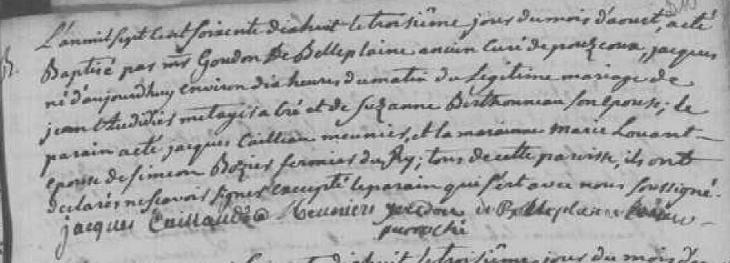 L'an mil sept cent soixente dix huit le troisiême jour du mois d'aoust, a eté
B. Baptisé par mr Goudon De Belleplaine ancien Curé de pouzeoux, jacques
né d'aujourdhuy environ dix heures du matin du Légitime mariage de
jean Audidies metayis a bré et de Suzanne Berthonneau son épouse; le
parain a eté jacques Cailleau meunier, et la maraine marie Louant
epouse de Simeon Bozier fermier du Ry; tous de cette paroisse, ils ont
declarés ne scavoir signer excepté le parain qui s'est avec nous soussigné.
jacques Caillaud Meuniers goudon de Belleplaine